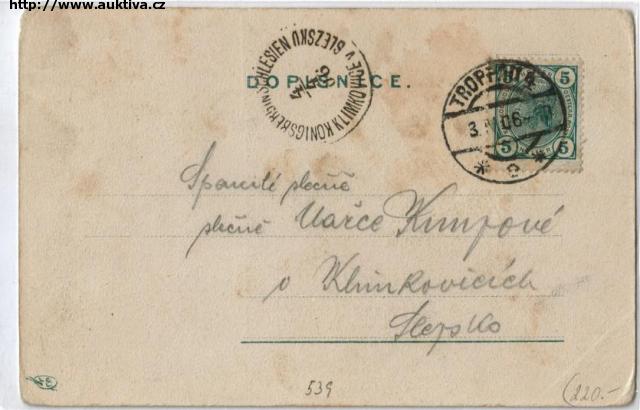 http://www.auktiva.cz
DOPISNICE.
KÖNIGSBERG IN SCHLESIEN
KLIMKOVICE V SLEZSKU
TROPPAU 4
3. 06
* c *
5 5
5 5
Spanilé slečně
slečně Mařce Kumpové
v Klimkovicích
Slezsko
539
(220.-